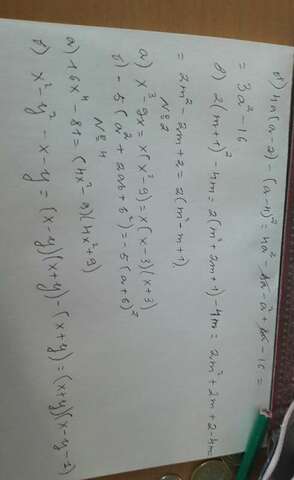 б) 4a(a-2) - (a-4)² = 4a² - 8a - a² + 8a - 16 =
= 3a² - 16
в) 2(m+1)² - 4m = 2(m²+2m+1) - 4m = 2m² + 2m + 2 - 4m
= 2m² - 2m + 2 = 2(m² - m + 1)
№2
а) x³ - 9x = x(x² - 9) = x(x-3)(x+3)
б) - 5(a² + 2ab + b²) = - 5(a+b)²
№4
а) 16x⁴ - 81 = (4x² - 9)(4x² + 9)
б) x² - y² - x - y = (x-y)(x+y) - (x+y) = (x+y)(x-y-1)